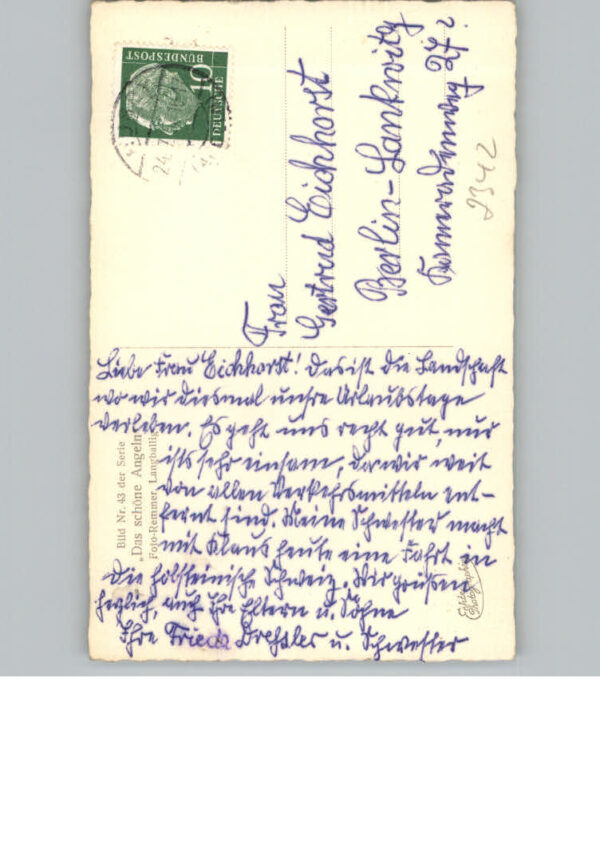 DEUTSCHE
BUNDESPOST
10
24.7
Frau
Gertrud Eichhorst
Berlin-Lankwitz
Kameradenweg 27
2342
Liebe Frau Eichhorst! Das ist die Landschaft
wo wir diesmal unsre Urlaubstage
verleben. Es geht uns recht gut, nur
ists sehr einsam, da wir weit
von allen Verkehrsmitteln ent-
fernt sind. Meine Schwester macht
mit Klaus heute eine Fahrt in
die holsteinische Schweiz. Wir grüßen
herzlich, auch Ihre Eltern u. Söhne
Ihre Frieda Drechsler u. Schwester
Bild Nr. 43 der Serie
„Das schöne Angeln"
Fojo-Remmer, Langballig